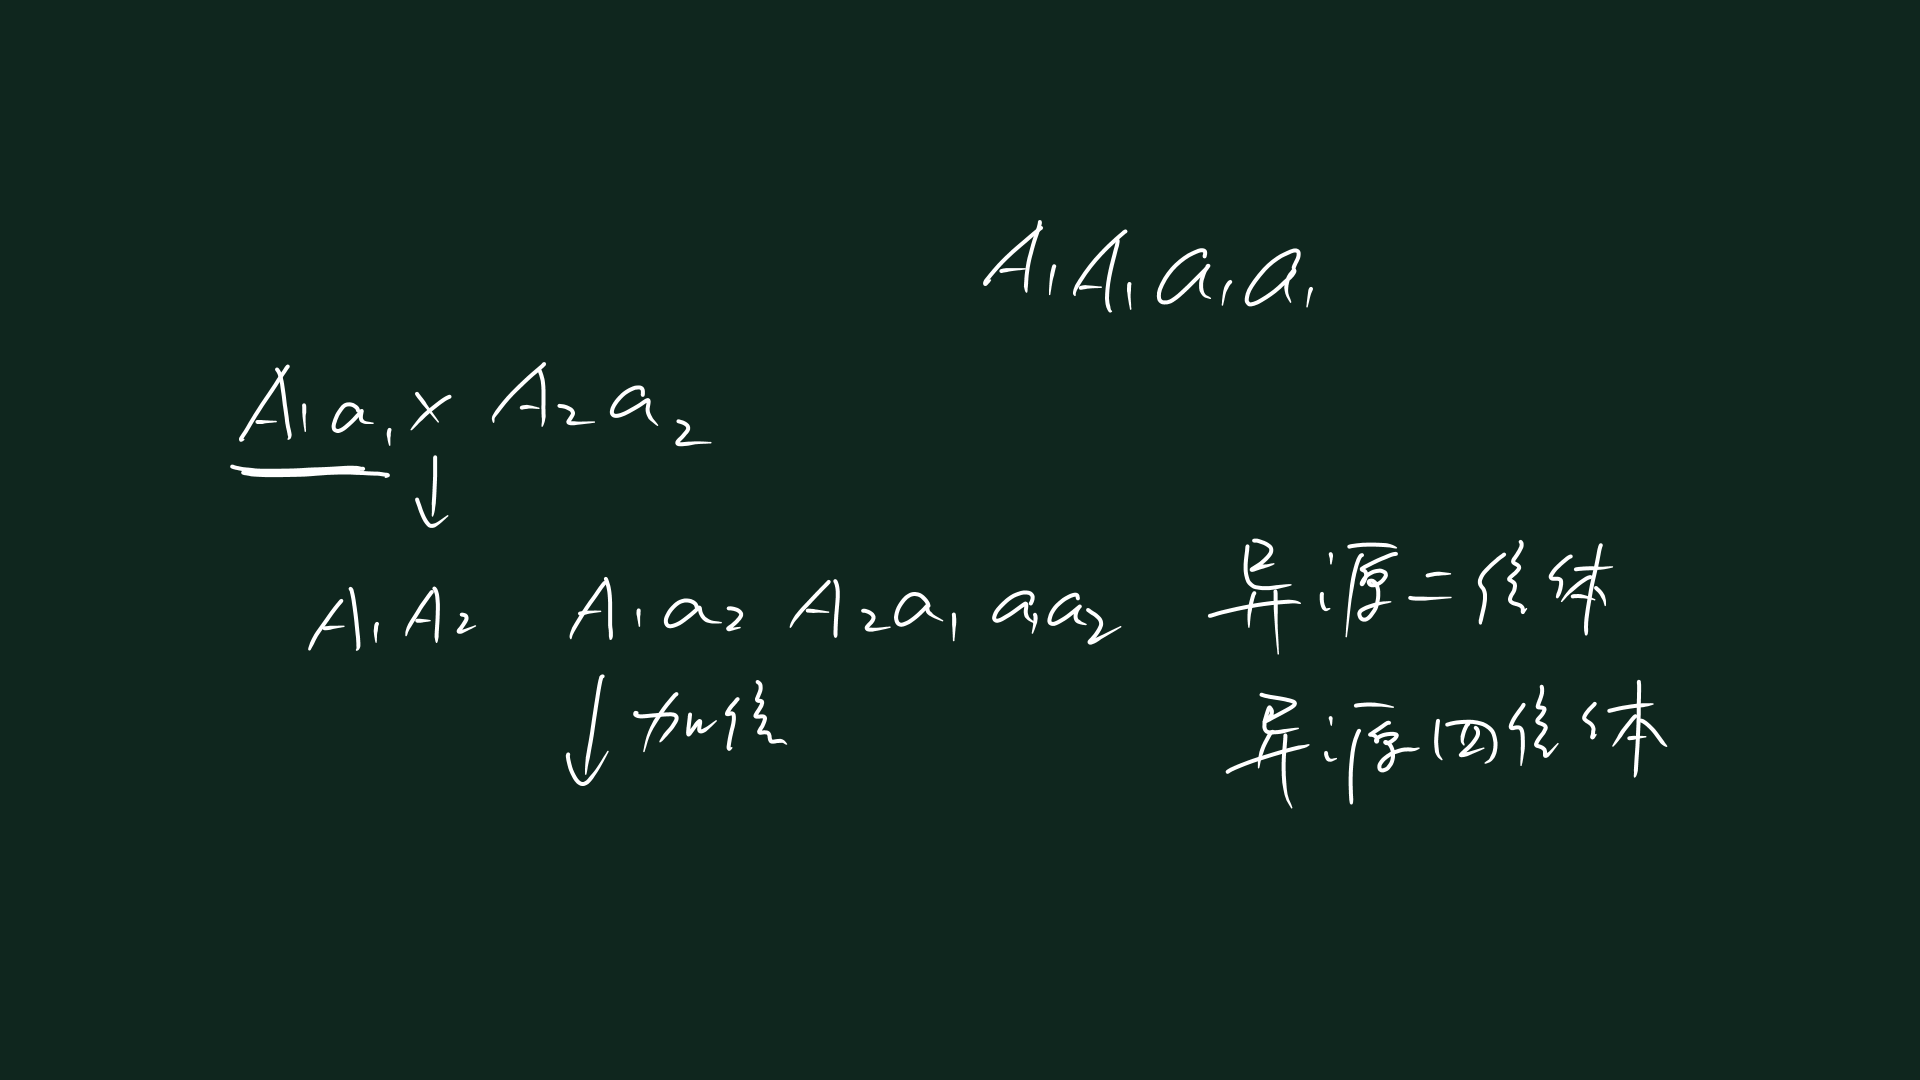 A₁A₁a₁a₁
A₁a₁ × A₂a₂
↓
A₁A₂ A₁a₂ A₂a₁ a₁a₂ 异源二倍体
↓加倍 异源四倍体